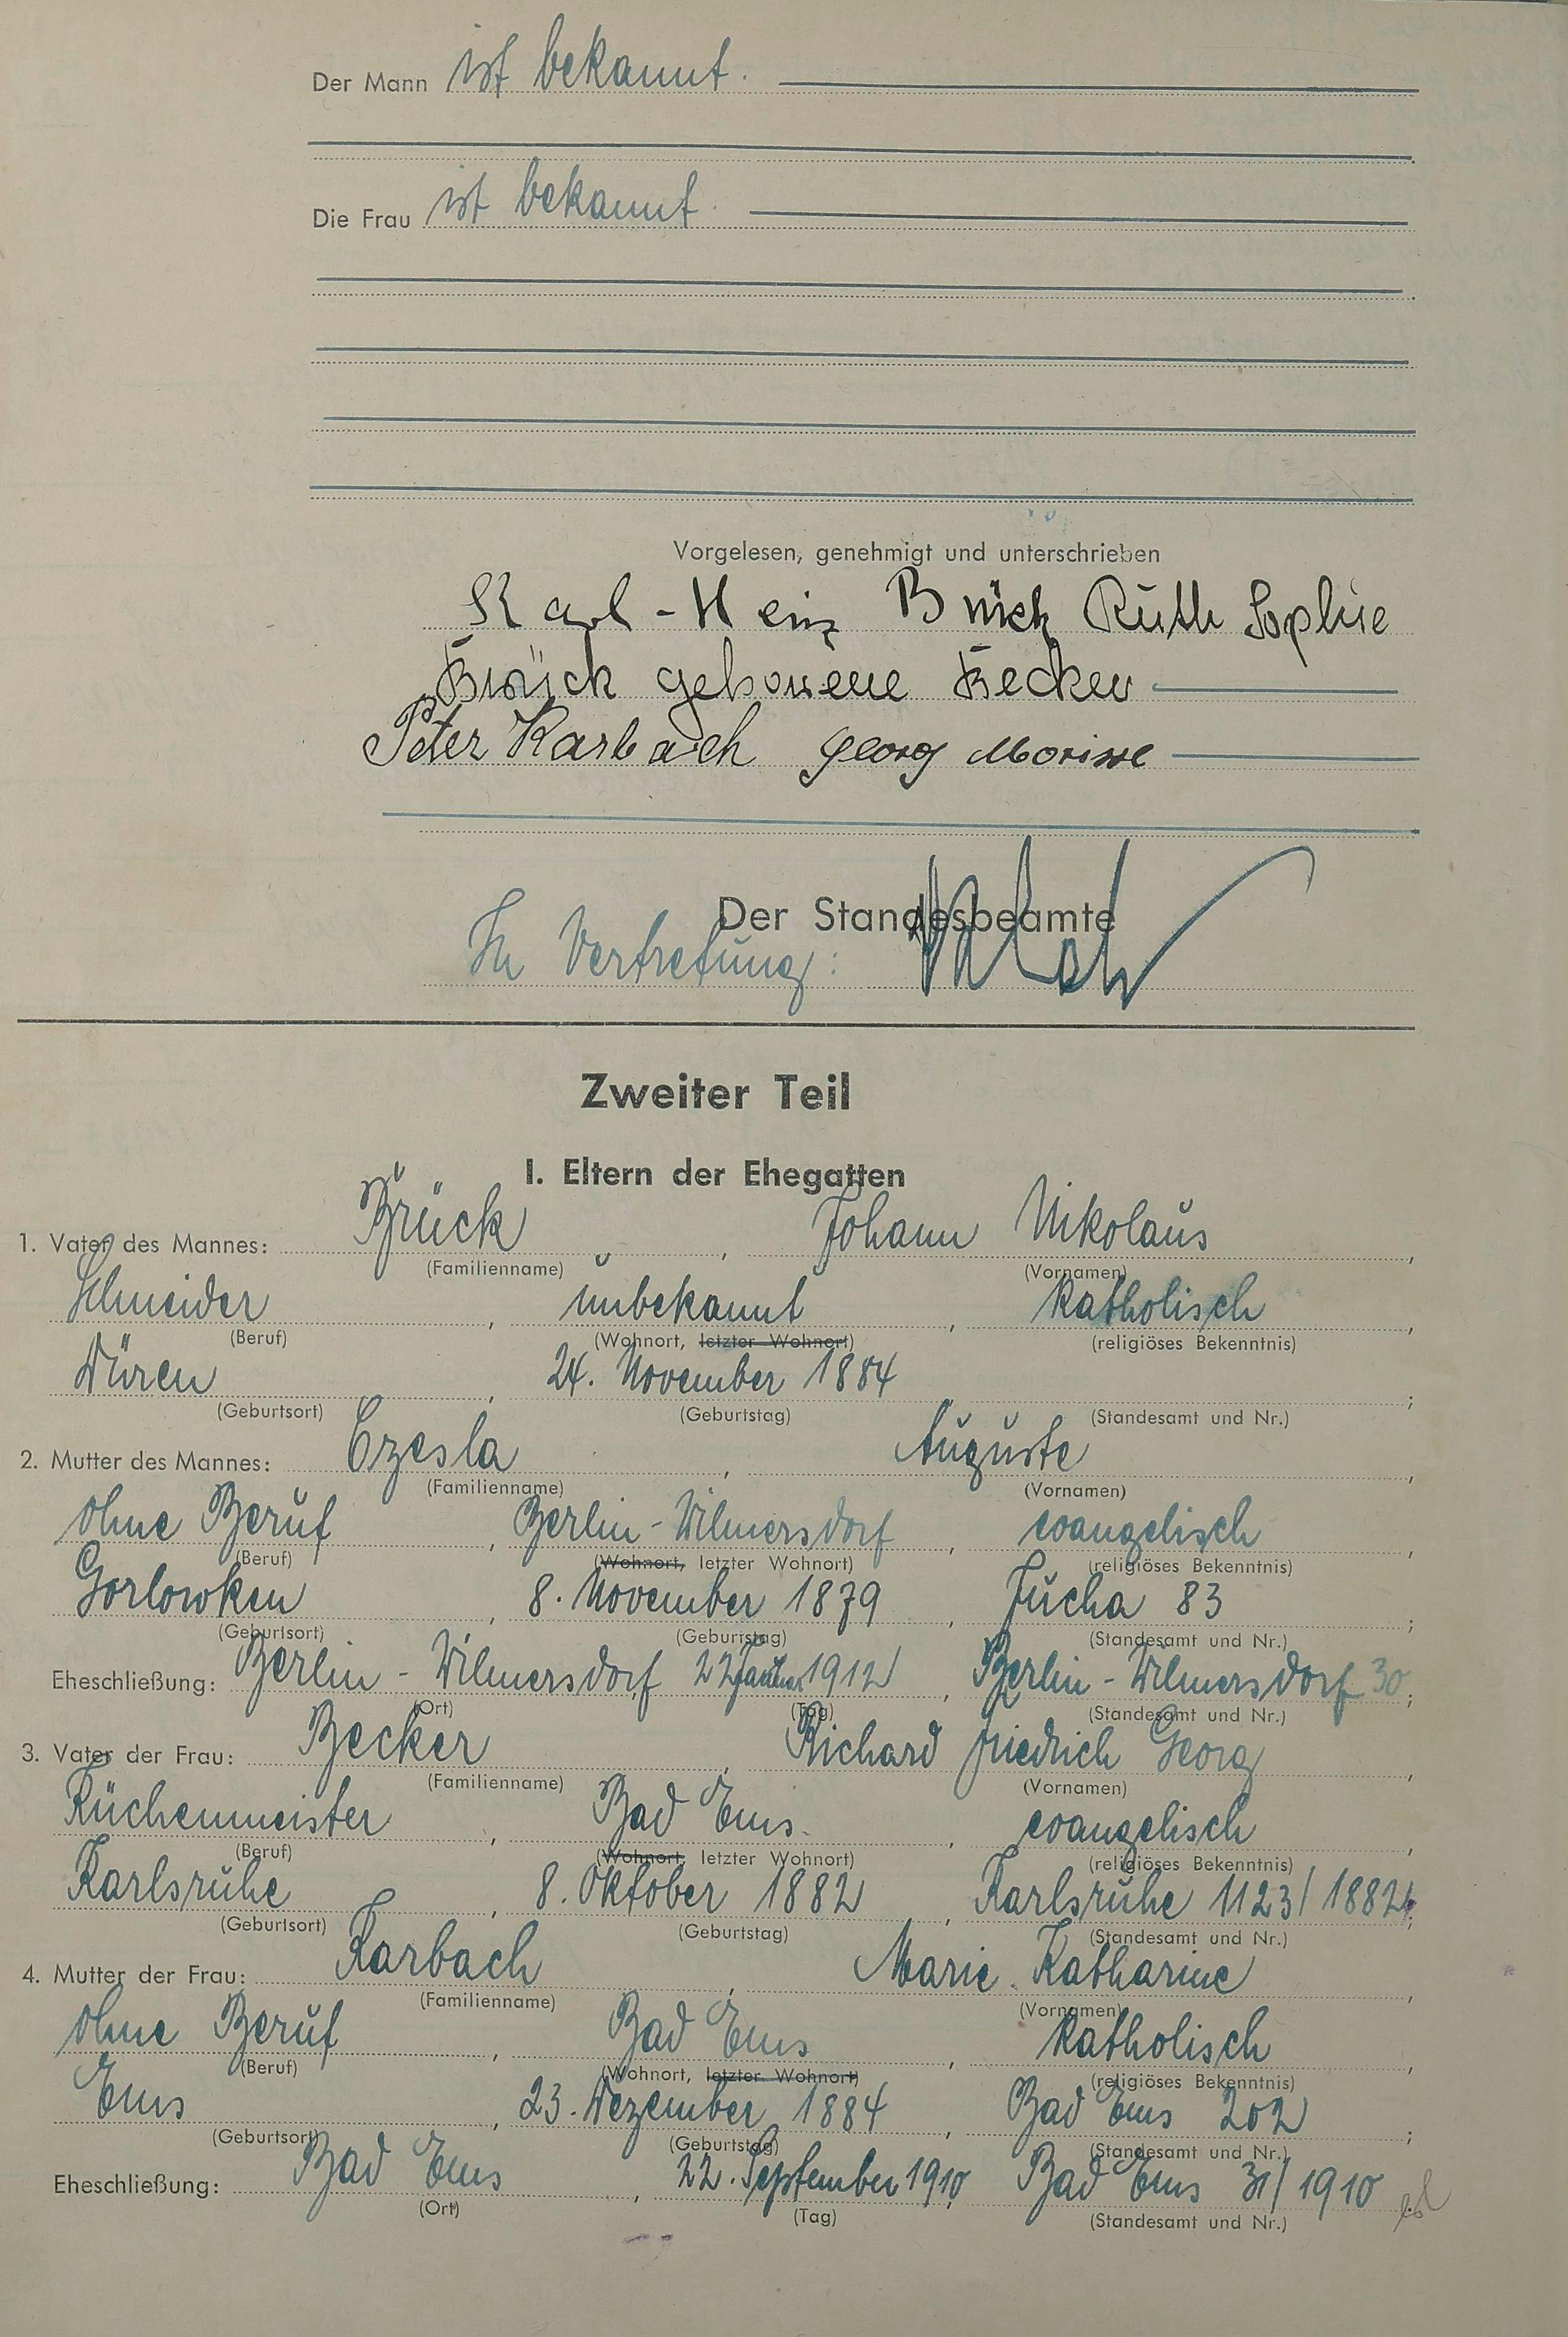 Der Mann ist bekannt.
Die Frau ist bekannt.
Vorgelesen, genehmigt und unterschrieben
Karl-Heinz Brück Ruth Sophie
Brück geborene Becker
Peter Karbach Georg Morisse
Der Standesbeamte
In Vertretung:
Zweiter Teil
I. Eltern der Ehegatten
1. Vater des Mannes: Brück, Johann Nikolaus,
(Familienname) (Vornamen)
Schneider, unbekannt, katholisch,
(Beruf) (Wohnort, letzter Wohnort) (religiöses Bekenntnis)
Düren, 24. November 1884 ;
(Geburtsort) (Geburtstag) (Standesamt und Nr.)
2. Mutter des Mannes: Czesla, Auguste,
(Familienname) (Vornamen)
ohne Beruf, Berlin-Wilmersdorf, evangelisch,
(Beruf) (Wohnort, letzter Wohnort) (religiöses Bekenntnis)
Gorlowken, 8. November 1879, Jucha 83;
(Geburtsort) (Geburtstag) (Standesamt und Nr.)
Eheschließung: Berlin-Wilmersdorf, 22 Januar 1912, Berlin-Wilmersdorf 30;
(Ort) (Tag) (Standesamt und Nr.)
3. Vater der Frau: Becker, Richard Friedrich Georg,
(Familienname) (Vornamen)
Küchenmeister, Bad Ems, evangelisch,
(Beruf) (Wohnort, letzter Wohnort) (religiöses Bekenntnis)
Karlsruhe, 8. Oktober 1882, Karlsruhe 1123/1882;
(Geburtsort) (Geburtstag) (Standesamt und Nr.)
4. Mutter der Frau: Karbach, Marie Katharine,
(Familienname) (Vornamen)
ohne Beruf, Bad Ems, katholisch,
(Beruf) (Wohnort, letzter Wohnort) (religiöses Bekenntnis)
Ems, 23. Dezember 1884, Bad Ems 202;
(Geburtsort) (Geburtstag) (Standesamt und Nr.)
Eheschließung: Bad Ems, 22. September 1910, Bad Ems 31/1910.
(Ort) (Tag) (Standesamt und Nr.)